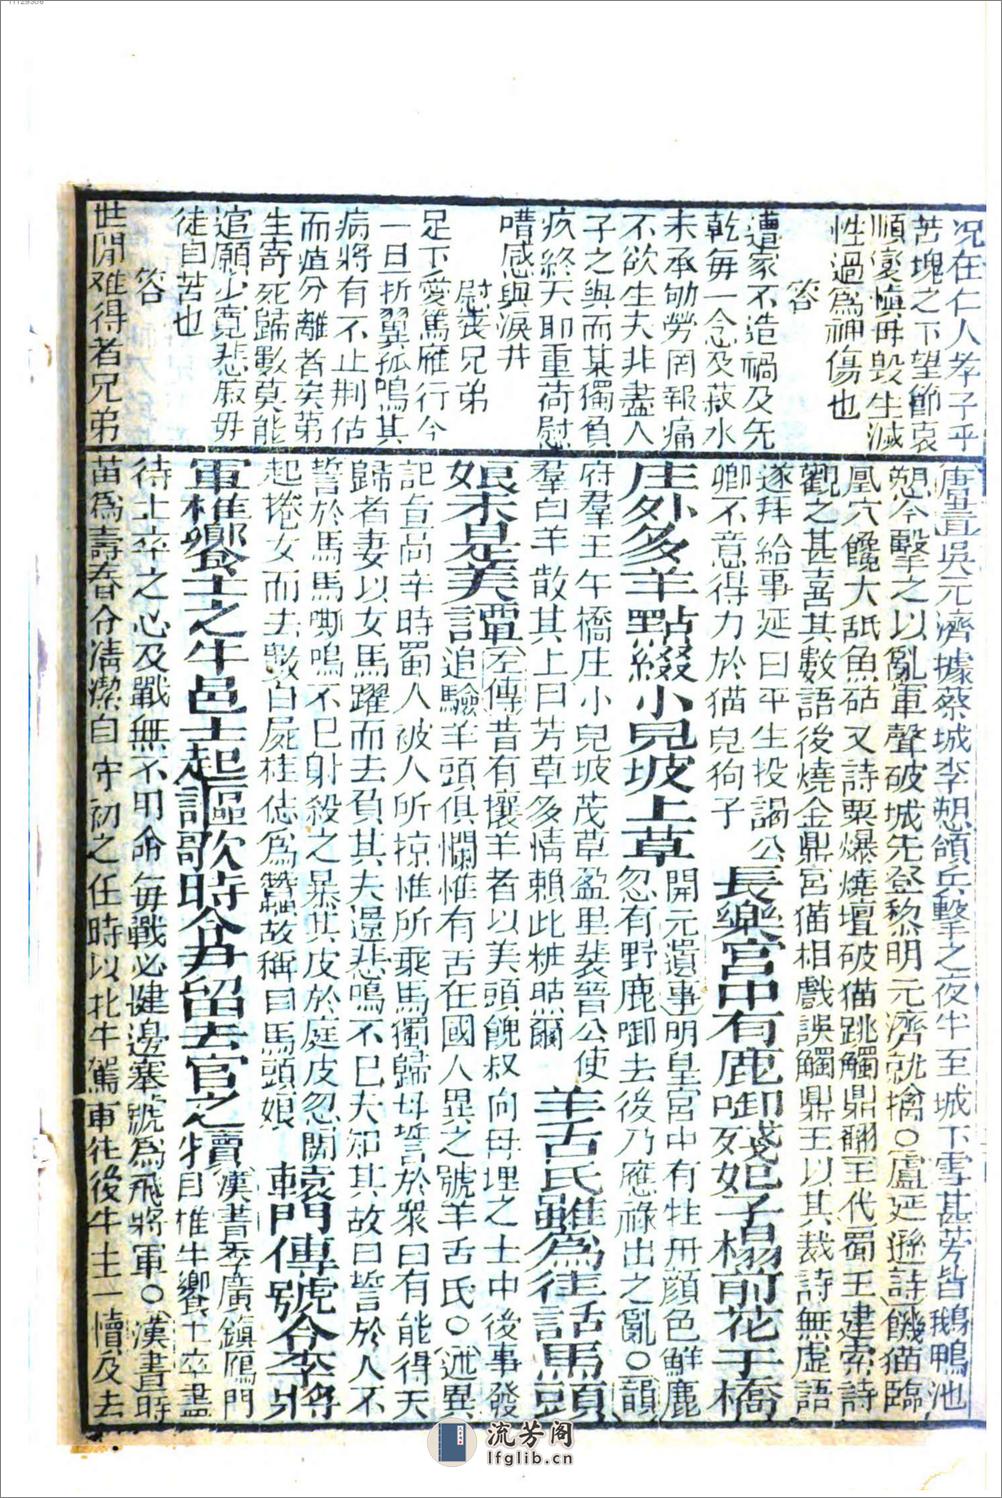 况在仁人孝子乎
苦塊之下望節哀
順變慎毋毁生滅
性過爲神傷也
答
遭家不造禍及先
乾每一念及菽水
未承劬勞罔報痛
不欲生夫非盡人
子之與而某獨負
疚終天耶重荷慰
唶感與淚并
慰喪兄弟
足下爱篤雁行今
一旦折翼孤鳴其
病將有不止荆估
而殖分離者矣弟
生寄死歸數莫能
逭願少寬悲毋
徒自苦也
答
世間难得者兄弟
唐書吳元濟據蔡城李愬領兵擊之夜半至城下雪甚旁皆鵝鴨池
愬令擊之以亂軍聲破城先登黎明元濟就擒○盧延遜詩饑猫臨
凰穴饞犬舐魚砧又詩栗爆燒壇破猫跳觸鼎翻王代蜀王建索詩
觀之甚喜其數語後燒金鼎宮猫相戲誤觸鼎王以其裁詩無虛語
遂拜給事延曰平生投謁公
卿不意得力於猫兒狗子
長樂宮中有鹿啣殘妃子榻前花午橋
庄外多羊點綴小兒坡上草
開元遺事明皇宮中有牡丹顔色鮮鹿
忽有野鹿啣去後乃應祿出之亂○韻
府羣玉午橋庄小兒坡茂草盈里裴晉公使
羣白羊散其上曰芳草多情賴此粧㸃爾
羊舌氏雖爲往話馬頭
娘未是美譚
左傳昔有攘羊者以美頭餽叔向母埋之土中後事發
詰追驗羊頭俱爛惟有舌在國人異之號羊舌氏○述異
記高辛時蜀人被人所掠惟所乘馬獨歸母誓於衆曰有能得天
歸者妻以女馬躍而去負其夫還悲鳴不已夫知其故曰誓於人不
誓於馬馬嘶鳴不已射殺之暴其皮於庭皮忽
起捲女而去數日屍桂㤅爲蠶故稱曰馬頭娘
關
轅門傳號令李將
軍椎饗士之牛邑土起謳歌時令尹留去官之犢
漢書李廣鎮鴈門
自椎牛饗士卒盡
待士卒之心及戰無不用命每戰必健邊塞號爲飛將軍○漢書時
苗爲壽春令清潔自守初之任時以牝牛駕車往後牛生一犢及去
流芳阁
lfglib.cn